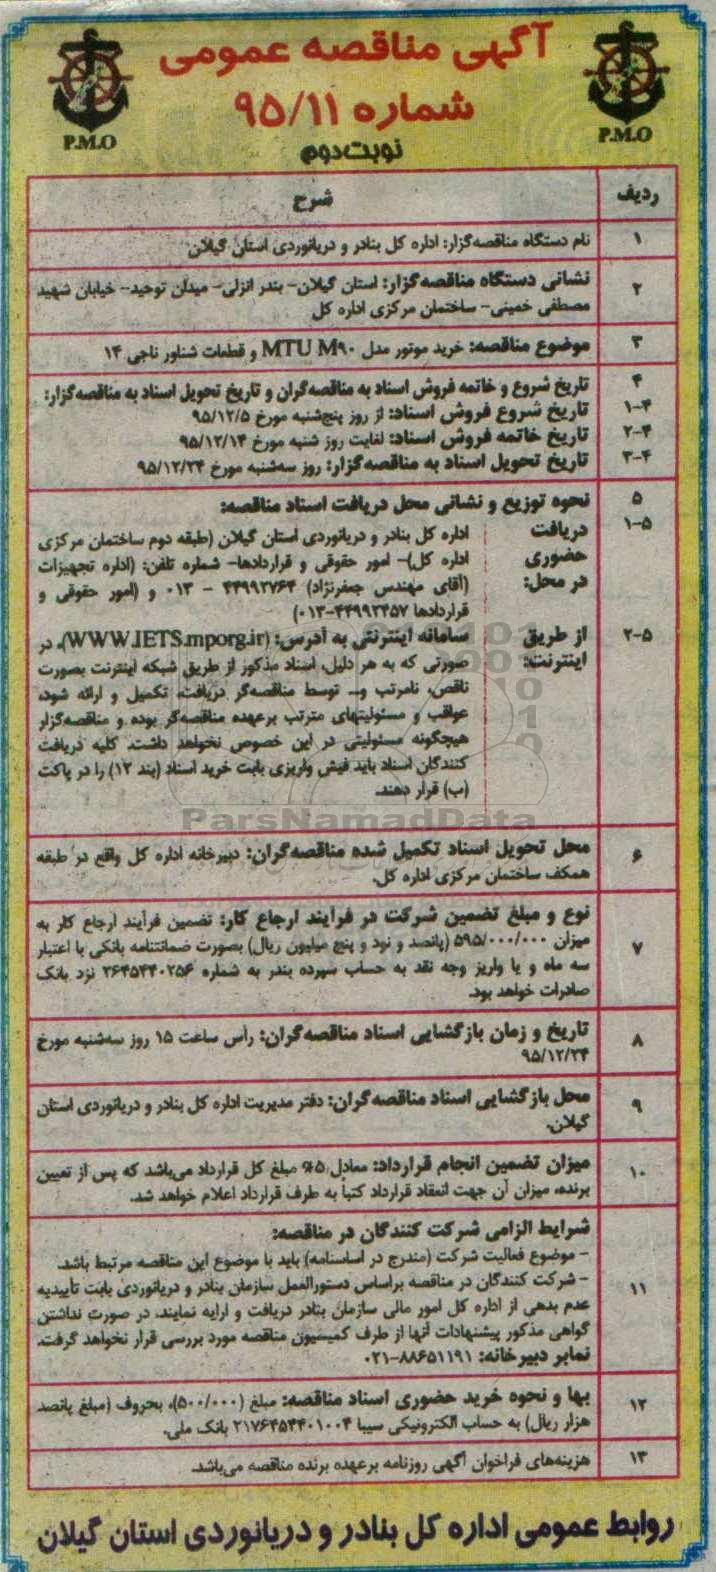 آگهی مناقصه عمومی
شماره ۹۵/۱۱
نوبت دوم
P.M.O
P.M.O
ردیف
شرح
۱
نام دستگاه مناقصه‌گزار: اداره کل بنادر و دریانوردی استان گیلان
۲
نشانی دستگاه مناقصه‌گزار: استان گیلان- بندر انزلی- میدان توحید- خیابان شهید
مصطفی خمینی- ساختمان مرکزی اداره کل
۳
موضوع مناقصه: خرید موتور مدل MTU M۹۰ و قطعات شناور ناجی ۱۴
۴
تاریخ شروع و خاتمه فروش اسناد به مناقصه‌گران و تاریخ تحویل اسناد به مناقصه‌گزار:
۱-۴
تاریخ شروع فروش اسناد: از روز پنج‌شنبه مورخ ۹۵/۱۲/۵
۲-۴
تاریخ خاتمه فروش اسناد: لغایت روز شنبه مورخ ۹۵/۱۲/۱۴
۳-۴
تاریخ تحویل اسناد به مناقصه‌گزار: روز سه‌شنبه مورخ ۹۵/۱۲/۲۴
۵
نحوه توزیع و نشانی محل دریافت اسناد مناقصه:
۱-۵
دریافت
حضوری
در محل:
اداره کل بنادر و دریانوردی استان گیلان (طبقه دوم ساختمان مرکزی
اداره کل)- امور حقوقی و قراردادها- شماره تلفن: (اداره تجهیزات
(آقای مهندس جعفرنژاد) ۴۴۹۹۲۷۶۴ - ۰۱۳ و (امور حقوقی و
قراردادها ۴۴۹۹۲۴۵۷-۰۱۳)
۲-۵
از طریق
اینترنت:
سامانه اینترنتی به آدرس: (WWW.IETS.mporg.ir)، در
صورتی که به هر دلیل، اسناد مذکور از طریق شبکه اینترنت بصورت
ناقص، نامرتب و... توسط مناقصه‌گر دریافت، تکمیل و ارائه شود،
عواقب و مسئولیتهای مترتب برعهده مناقصه‌گر بوده و مناقصه‌گزار
هیچگونه مسئولیتی در این خصوص نخواهد داشت. کلیه دریافت
کنندگان اسناد باید فیش واریزی بابت خرید اسناد (بند ۱۲) را در پاکت
(ب) قرار دهند.
ParsNamadData
۶
محل تحویل اسناد تکمیل شده مناقصه‌گران: دبیرخانه اداره کل واقع در طبقه
همکف ساختمان مرکزی اداره کل.
۷
نوع و مبلغ تضمین شرکت در فرآیند ارجاع کار: تضمین فرآیند ارجاع کار به
میزان ۵۹۵/۰۰۰/۰۰۰ (پانصد و نود و پنج میلیون ریال) بصورت ضمانتنامه بانکی با اعتبار
سه ماه و یا واریز وجه نقد به حساب سپرده بندر به شماره ۲۶۴۵۴۴۰۲۵۶ نزد بانک
صادرات خواهد بود.
۸
تاریخ و زمان بازگشایی اسناد مناقصه‌گران: رأس ساعت ۱۵ روز سه‌شنبه مورخ
۹۵/۱۲/۲۴
۹
محل بازگشایی اسناد مناقصه‌گران: دفتر مدیریت اداره کل بنادر و دریانوردی استان
گیلان.
۱۰
میزان تضمین انجام قرارداد: معادل ۵% مبلغ کل قرارداد می‌باشد که پس از تعیین
برنده، میزان آن جهت انعقاد قرارداد کتباً به طرف قرارداد اعلام خواهد شد.
۱۱
شرایط الزامی شرکت کنندگان در مناقصه:
- موضوع فعالیت شرکت (مندرج در اساسنامه) باید با موضوع این مناقصه مرتبط باشد.
- شرکت کنندگان در مناقصه براساس دستورالعمل سازمان بنادر و دریانوردی بابت تأییدیه
عدم بدهی از اداره کل امور مالی سازمان بنادر دریافت و ارایه نمایند، در صورت نداشتن
گواهی مذکور پیشنهادات آنها از طرف کمیسیون مناقصه مورد بررسی قرار نخواهد گرفت.
نمابر دبیرخانه: ۸۸۶۵۱۱۹۱-۰۲۱
۱۲
بها و نحوه خرید حضوری اسناد مناقصه: مبلغ (۵۰۰/۰۰۰)، بحروف (مبلغ پانصد
هزار ریال) به حساب الکترونیکی سیبا ۲۱۷۶۴۵۴۴۰۱۰۰۴ بانک ملی.
۱۳
هزینه‌های فراخوان آگهی روزنامه برعهده برنده مناقصه می‌باشد.
روابط عمومی اداره کل بنادر و دریانوردی استان گیلان